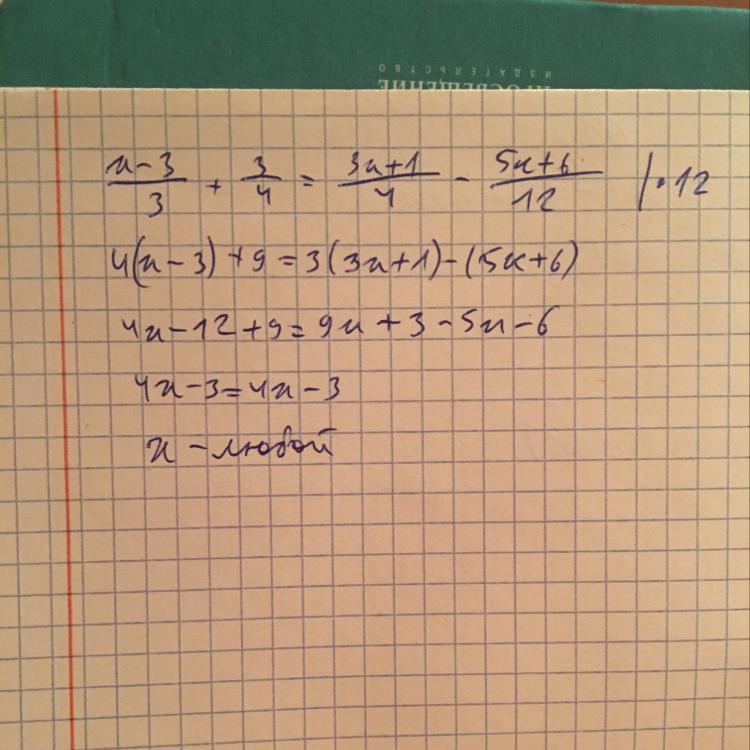 ПРОСВЕЩЕНИЕ
ИЗДАТЕЛЬСТВО
x-3/3 + 3/4 = 3x+1/4 - 5x+6/12 |·12
4(x-3)+9=3(3x+1)-(5x+6)
4x-12+9=9x+3-5x-6
4x-3=4x-3
x-любой